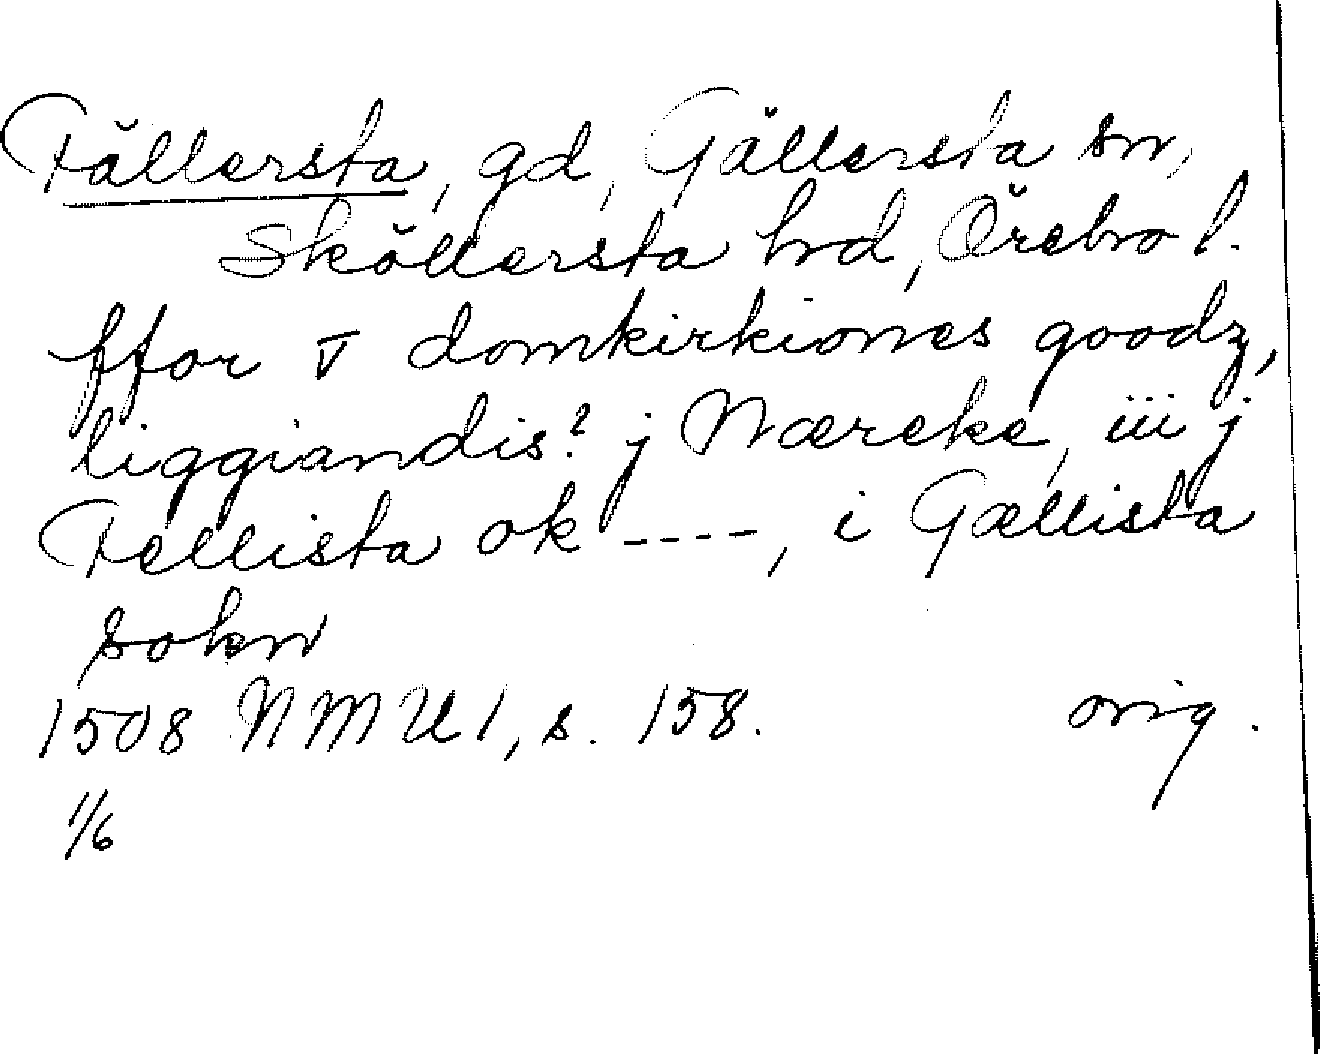 Tällersta, gd, Gällersta sn,
Sköllersta hrd, Örebro l.
ffor v domkirkiones goodz,
liggiandis? j Nærcke, iii j
Tellista ok ----, i Gællista
sokn
1508 NMU 1, s. 158. orig.
1/6